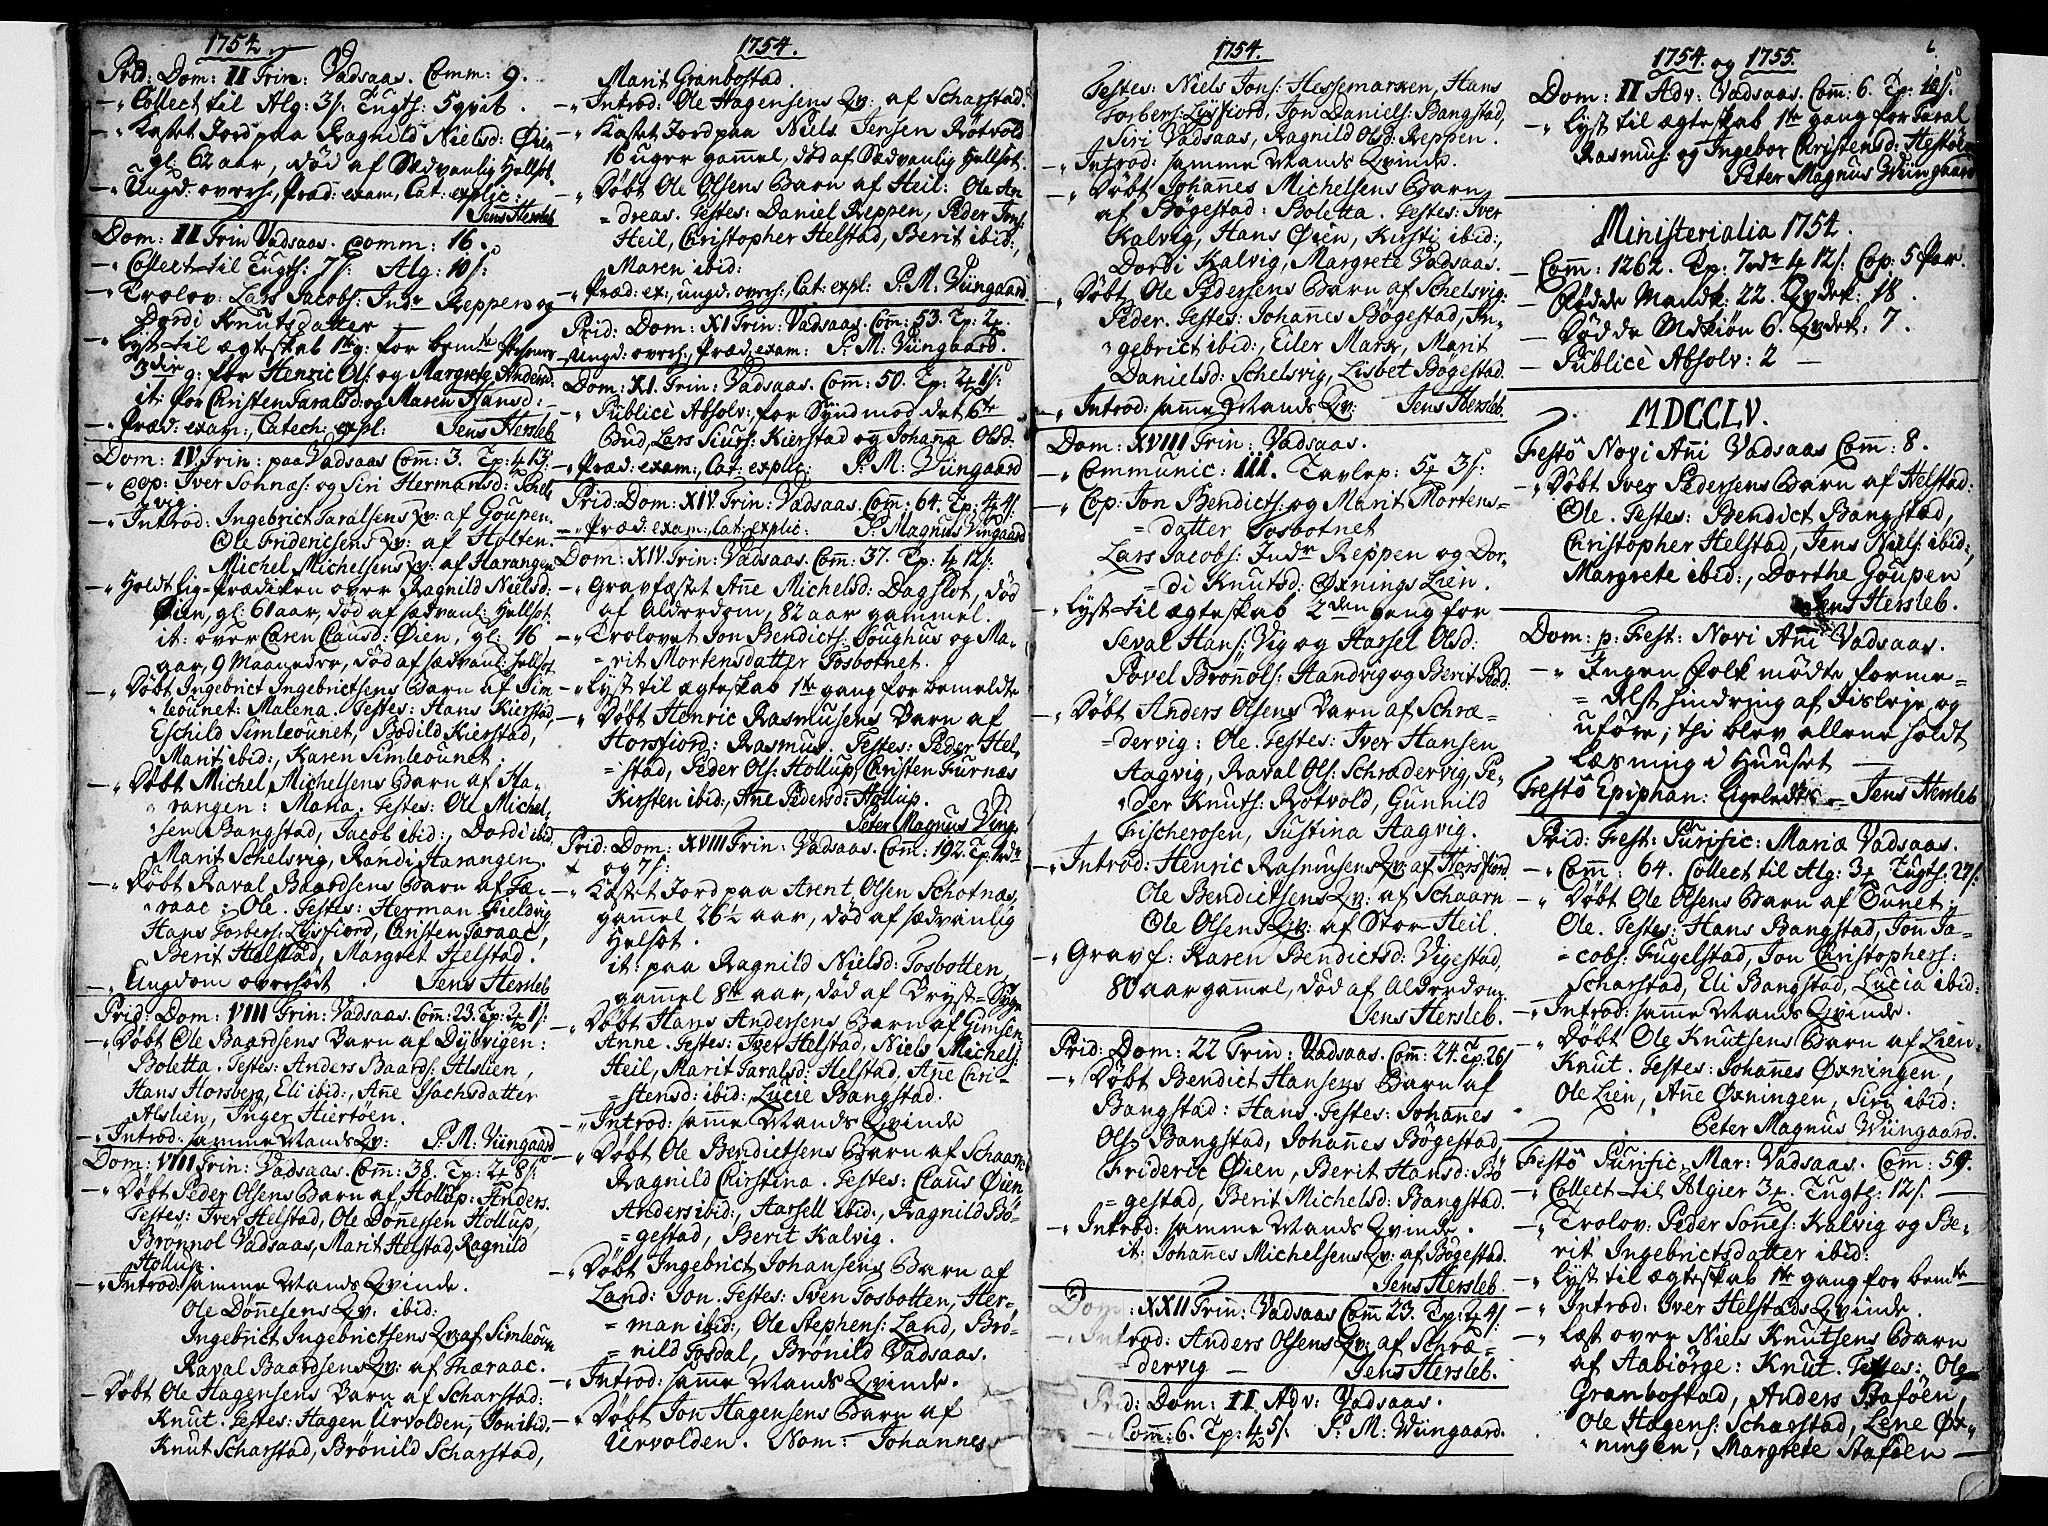 1754.
Prid: Dom: II Trin: Vadsaas. Comm: 9.
—„ Collect til Alg: 3 s: Tugth: 5 qvit.
—„ Kastet Jord paa Ragnild Nielsd: Øien
gl: 62 aar, død af Sædvanlig Hellsot.
—„ Ungd: overh:, Præd: exam, Cat: explic:
Jens Hersleb
Dom: II Trin Vadsaas. Comm: 16.
—„ Collect til Tugth: 7 s: Alg: 10 s:
—„ Trolov: Lars Jacobs: Indr Reppen og
Dordi Knutsdatter
—„ Lyst til ægteskab 1te g: for bemte Personer
3die g: for Henric Ols: og Margrete Andersd:
it: for Christen Taralsd: og Maren Hansd:
—„ Præd: exam:, Catech: expl: Jens Hersleb
Dom: IV Trin: paa Vadsaas Comm: 3. Tp: 4 13
—„ Cop: Iver Tonnæs: og Siri Hermansd: Schels
vig
—„ Introd: Ingebrict Taralsens Qv: af Goupen.
Ole Fridericsens Qv: af Holten.
Michel Michelsens Qv: af Harangen
—„ Holdt Lig-Prædiken over Ragnild Nielsd:
Øien, gl: 61 aar, død af sædvanl: Hellsot.
it: over Caren Clausd: Øien, gl: 16
aar, 9 Maaneder, død af sædvanl: hellsot
—„ Døbt Ingebrict Ingebrictsens Barn af Sim
leounet: Malena. Testes: Hans Kierstad,
Eschild Simleounet, Bodild Kierstad,
Marit ibid:, Karen Simleounet.
—„ Døbt Michel Michelsens Barn af Ha
rangen: Maria. Testes: Ole Michel-
sen Bangstad, Jacob ibid:, Dordi ibid:
Marit Schelsvig, Randi Harangen.
—„ Døbt Raval Baardsens Barn af Ta-
raac: Ole. Testes: Herman Fieldvig
Hans Torbers: Lysfiord, Christen Taraac,
Berit Helstad, Margret Helstad.
—„ Ungdom overhørt. Jens Hersleb
Prid: Dom: VIII Trin: Vadsaas. Comm: 23. Tp: 2 1 s:
—„ Døbt Ole Baardsens Barn af Dybvigen:
Boletta. Testes: Anders Baards: Alslien,
Hans Horsberg, Eli ibid:, Ane Isachsdatter
Alslien, Inger Hiertøen.
—„ Introd: samme Mands Qv: P. M. Viingaard
Dom: VIII Trin: Vadsaas. Comm: 38. Tp: 2 8 s:
—„ Døbt Peder Olsens Barn af Hollup: Anders.
Testes: Iver Helstad, Ole Dønnessen Hollup,
Brønnol Vadsaas, Marit Helstad, Ragnild
Hollup.
—„ Introd: samme Mands Qvinde.
Ole Dønnesens Qv: ibid:
Ingebrict Ingebrictsens Qv: af Simleoun
Raval Baardsens Qv: af Taraac.
— Døbt Ole Hagensens Barn af Scharstad:
Knut. Testes: Hagen Urvolden, Jon ibid:
Knut Scharstad, Brønild Scharstad,
1754.
Marit Granbostad.
—„ Introd: Ole Hagensens Qv: af Scharstad.
—„ Kastet Jord paa Niels Jensen Røtvold
16 uger gammel, død af Sædvanlig Hellsot.
—„ Døbt Ole Olsens Barn af Heil: Ole An
=dreas. Testes: Daniel Reppen, Peder Jens:
Heil, Christopher Helstad, Berit ibid:,
Maren ibid:
—„ Præd: ex:, ungd: overh:, Cat: expl: P. M. Viingaard
Prid: Dom: XI Trin: Vadsaas. Com: 53. Tp: 2
—„ Ungd: overh:, Præd, exam: P. M: Viingaard.
Dom: XI. Trin: Vadsaas. Comm: 50. Tp: 2 1 s:
—„ Publicè Absolv: for Synd mod det 6te
Bud, Lars Siurs: Kierstad og Johanna Olsd.
—„ Præd: exam:, Cat: explic: P. M: Viingaard
Prid: Dom: XIV. Trin: Vadsaas. Com: 64. Tp: 4 4 s.
—„ Præd: exam:, Cat: explic: P. Magnus Viingaard
Dom: XIV. Trin: Vadsaas. Comm: 37. Tp: 4 12 s:
—„ Gravfæstet Ane Michelsd: Dagslot, død
af Alderdom, 82 aar gammel.
—„ Trolovet Jon Bendicts: Boughus og Ma-
=rit Mortensdatter Tosbotnet.
—„ Lyst til ægteskab 1te gang for bemeldte
—„ Døbt Henric Rasmusens Barn af
Horsfiord: Rasmus. Testes: Peder Hel
=stad, Peder Ols: Hollup, Christen Furnæs
Kirsten ibid:, Ane Pedersd: Hollup.
Peter Magnus Viing.
Prid: Dom: XVIII Trin: Vadsaas. Comm: 192. Tp: 1 rdr
og 7 s:
—„ Kastet Jord paa Arent Olsen Schotnæs,
gammel 26½ aar, død af sædvanlig
Helsot.
it: paa Ragnild Nielsd: Tosbotten,
gammel 8te aar, død af Bryst=Syge
—„ Døbt Hans Andersens Barn af Gimsen
Anne. Testes: Iver Helstad, Niels Michels:
Heil, Marit Taralsd: Helstad, Ane Chri-
=stensd: ibid:, Lucie Bangstad.
—„ Introd: samme Mands Qvinde
—„ Døbt Ole Bendictsens Barn af Schaarn
Ragnild Chirstina. Testes: Claus Øien
Anders ibid:, Aarsell ibid:, Ragnild Bø-
=gestad, Berit Kalvig.
—„ Døbt Ingebrict Johansens Barn af
Land: Jon. Testes: Sven Tosbotten, Her-
=man ibid:, Ole Stephens: Land, Brø-
=nild Tosdal, Brønild Vadsaas.
—„ Introd: samme Mands Qvinde.
—„ Døbt Jon Hagensens Barn af
Urvolden. Nom: Johannes
1754.
Testes: Niels Jons: Hessemarken, Hans
Torbers: Lysfiord, Jon Daniels: Bangstad,
Siri Vadsaas, Ragnild Olsd: Reppen.
—„ Introd: samme Mands Qvinde.
—„ Døbt Johannes Michelsens Barn
af Bøgestad: Boletta. Testes: Iver
Kalvig, Hans Øien, Kirsti ibid:,
Dordi Kalvig, Margrete Vadsaas.
—„ Døbt Ole Pedersens Barn af Schelsvig:
Peder. Testes: Johanes Bøgestad, In-
gebrict ibid:, Eiler Marsr, Marit
Danielsd: Schelsvig, Lisbet Bøgestad.
—„ Introd: samme Mands Qv: Jens Hersleb.
Dom: XVIII Trin: Vadsaas.
—„ Communic: 111. Tavlep: 5 3 s:
—„ Cop: Jon Bendicts: og Marit Mortens-
=datter Tosbotnet
Lars Jacobs: Indr Reppen og Dor-
=di Knutsd: Øxnings Lien.
—„ Lyst til ægteskab 2den gang for
Seval Hans: Vig og Aarsel Olsd:
Povel Brønols: Handvig og Berit Pedd.
—„ Døbt Anders Olsens Barn af Schræ-
=dervig: Ole. Testes: Iver Hansen
Aagvig, Raval Ols: Schrædervig, Pe-
der Knuts: Røtvold, Gunhild
Fischerosen, Justina Aagvig.
—„ Introd: Henric Rasmusens Qv: af Horsfiord.
Ole Bendictsens Qv: af Schaarn
Ole Olsens Qv: af Stor Heil.
—„ Gravf: Karen Bendictsd: Vigestad,
80 aar gammel, død af Alderdom.
Jens Hersleb.
Prid: Dom: 22 Trin: Vadsaas. Comm: 24. Tp: 26 s
—„ Døbt Bendict Hansens Barn af
Bangstad: Hans. Testes: Johannes
Ols: Bangstad, Johannes Bøgestad,
Frideric Øien, Berit Hansd: Bø
=gestad, Berit Michelsd: Bangstad.
—„ Introd: samme Mands Qvinde.
it: Johannes Michelsens Qv: af Bøgestad.
Jens Hersleb.
Dom: XXII Trin: Vadsaas Comm 23. Tp: 2 4 s.
—„ Introd: Anders Olsens Qv: af Schræ-
=dervig — Jens Hersleb.
Prid: Dom: II Adv: Vadsaas.
Comm: 6. Tp: 4 5 s. P. M: Viingaard.
1754. og 1755.
6
Dom: II Adv: Vadsaas. Comm: 6. Tp: 10 s.
—„ Lyst til ægteskab 1te gang for Taral
Rasmus: og Ingebor Christensd: Hestøen
Peter Magnus Viingaard
Ministerialia 1754.
— Comm: 1262. Tp: 7 rdr 4 12 s: Cop: 5 Par.
— Fødde Mandk: 22. Qvdek: 18.
— Døde Mdkiøn 6. Qvdek: 7.
— Publicè Absolv: 2 —
MDCCLV.
Festo Novi Ani Vadsaas Comm: 8.
—„ Døbt Iver Pedersens Barn af Helstad:
Ole. Testes: Bendict Bangstad,
Christopher Helstad, Jens Niels: ibid:,
Margrete ibid:, Dorthe Goupen
Jens Hersleb.
Dom: p: Fest: Novi Ani Vadsaas.
—„ Ingen folk mødte forme-
=delst hindring af Tisleje og
uføre; thi blev allene holdt
Læsning i Huuset —
Festo Epiphan: Ligeledes — Jens Hersleb
Prid: Fest: Purific: Mariæ Vadsaas.
—„ Comm: 64. Collect til Alg: 3 Tugth: 27 s:
—„ Døbt Ole Olsens Barn af Ounet:
Ole. Testes: Hans Bangstad, Jon Ja-
=cobs: Fugelstad, Jon Christophers:
Scharstad, Eli Bangstad, Lucia ibid:
—„ Introd: samme Mands Qvinde.
—„ Døbt Ole Knutsens Barn af Lien
Knut. Testes: Johannes Øxningen,
Ole Lien, Ane Øxningen, Siri ibid:
Peter Magnus Viingaard.
Festo Purific: Mar: Vadsaas. Com: 59.
—„ Collect til Algier 3. Tugth: 12 s. —
—„ Trolov: Peder Sones: Kalvig og Be-
rit Ingebrictsdatter ibid:
—„ Lyst til ægteskab 1te gang for bemte
—„ Introd: Iver Helstads Qvinde.
—„ Læst over Niels Knutsens Barn
af Aabiørge: Knut. Testes: Ole
Granbostad, Anders Staføen,
Ole Hagens: Scharstad, Lene Øx-
ningen, Margrete Staføen —